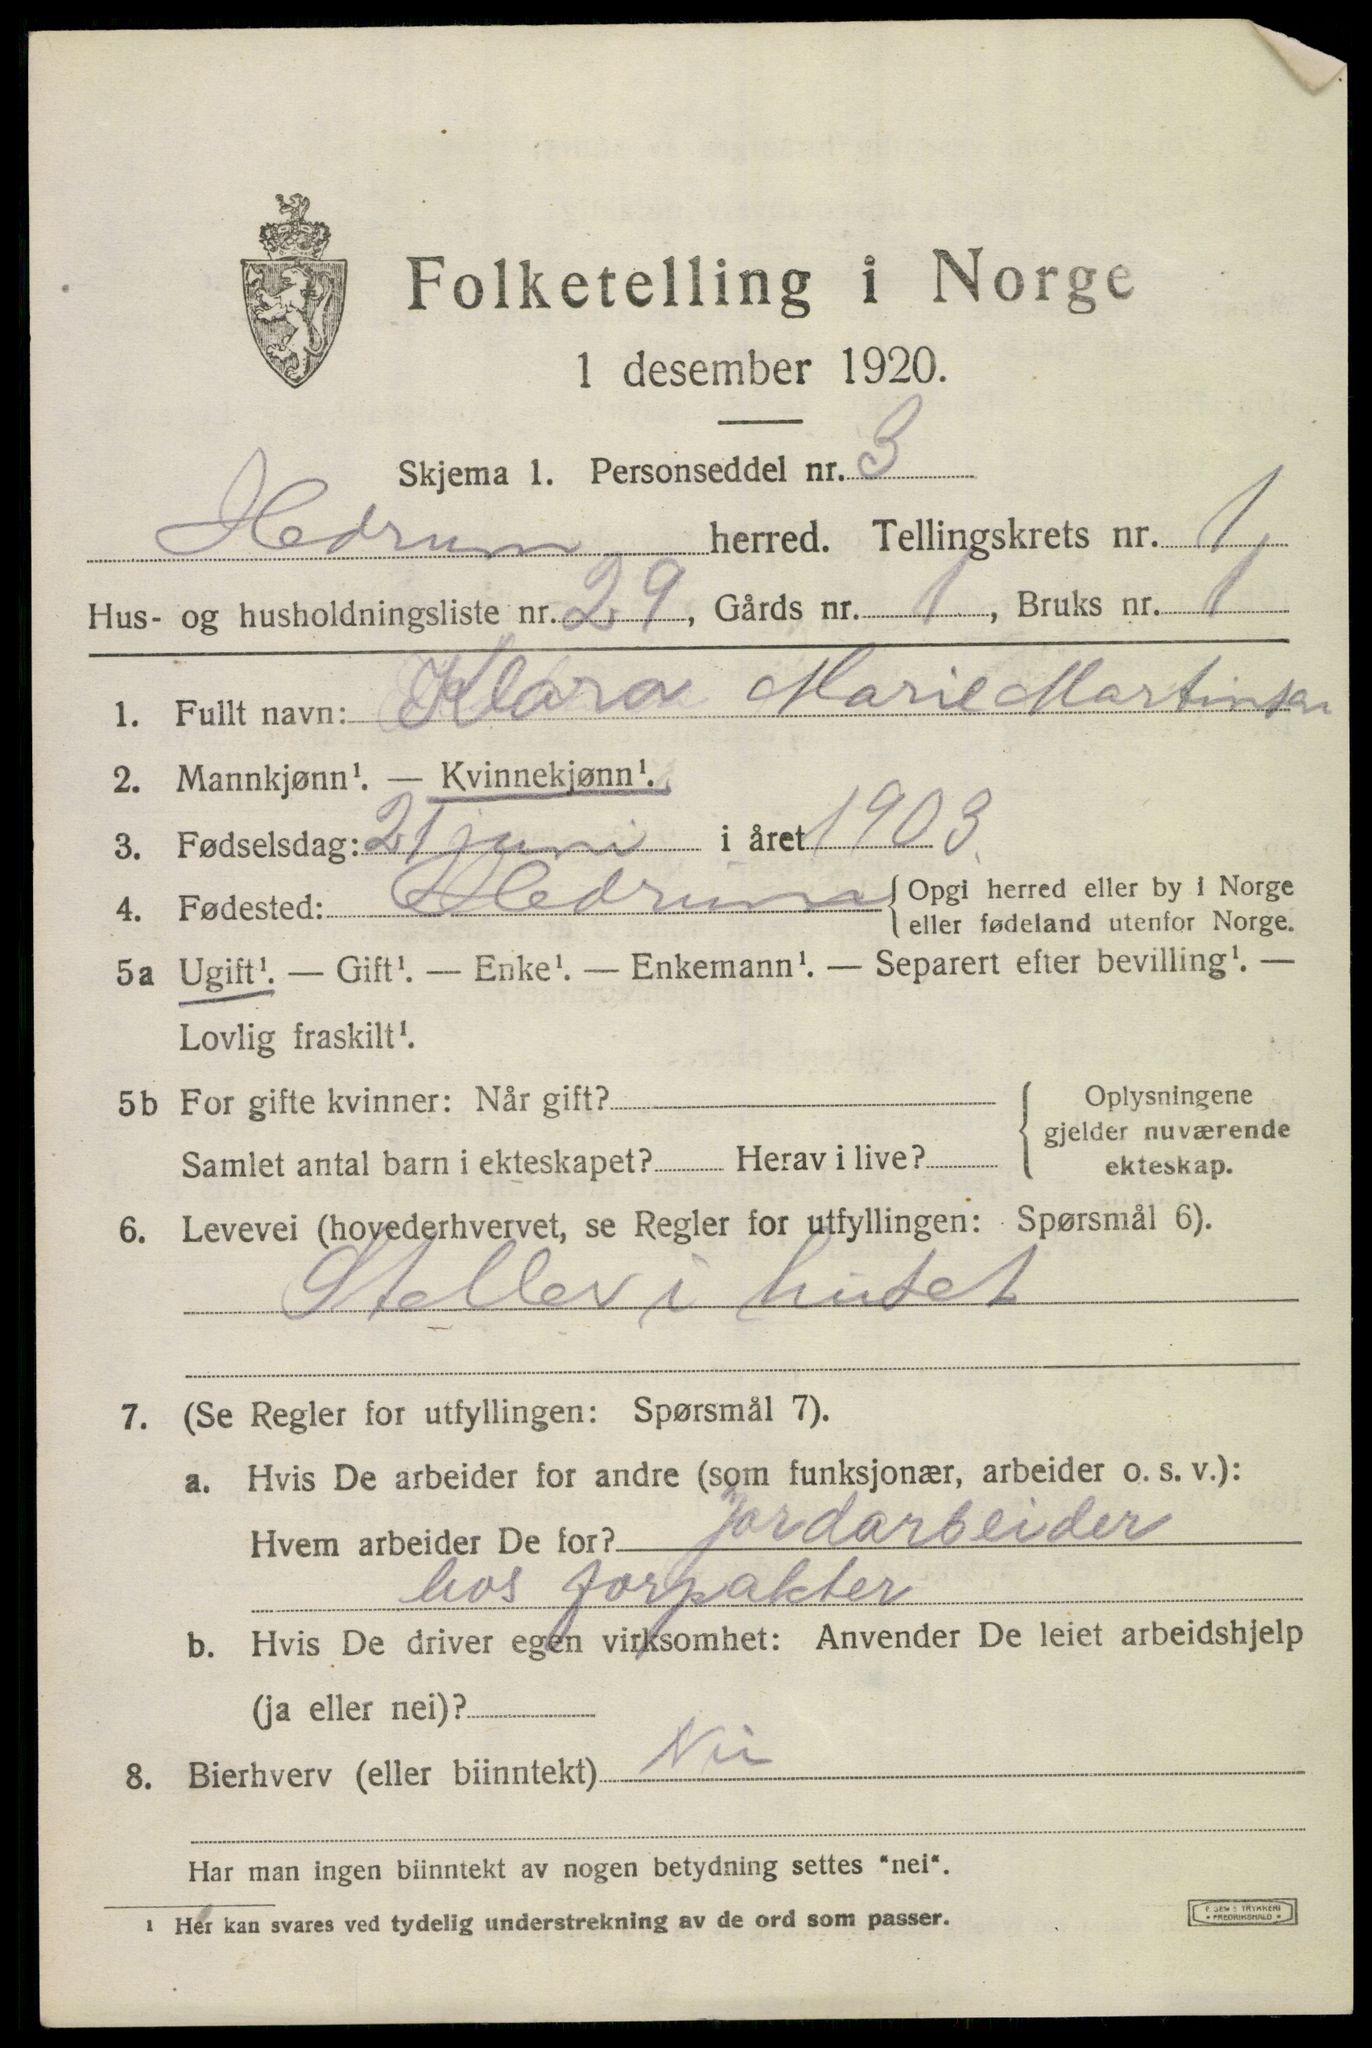 Folketelling i Norge
1 desember 1920.
Skjema 1. Personseddel nr. 3
Hedrum herred. Tellingskrets nr. 1
Hus- og husholdningsliste nr. 29, Gårds nr. 1, Bruks nr. 1
1. Fullt navn: Klara Marie Martinsen
2. Mannkjønn¹. — Kvinnekjønn¹.
3. Fødselsdag: 21 juni i året 1903
4. Fødested: Hedrum { Opgi herred eller by i Norge
eller fødeland utenfor Norge.
5a Ugift¹. — Gift¹. — Enke¹. — Enkemann¹. — Separert efter bevilling¹. —
Lovlig fraskilt¹.
5b For gifte kvinner: Når gift? { Oplysningene
gjelder nuværende
Samlet antal barn i ekteskapet? Herav i live? ekteskap.
6. Levevei (hovederhvervet, se Regler for utfyllingen: Spørsmål 6).
Steller i huset
7. (Se Regler for utfyllingen: Spørsmål 7).
a. Hvis De arbeider for andre (som funksjonær, arbeider o. s. v.):
Hvem arbeider De for? jordarbeider
hos forpakter
b. Hvis De driver egen virksomhet: Anvender De leiet arbeidshjelp
(ja eller nei)?
8. Bierhverv (eller biinntekt) Nei
Har man ingen biinntekt av nogen betydning settes "nei".
¹ Her kan svares ved tydelig understrekning av de ord som passer.
E. SEM'S TRYKKERI
• FREDRIKSHALD •